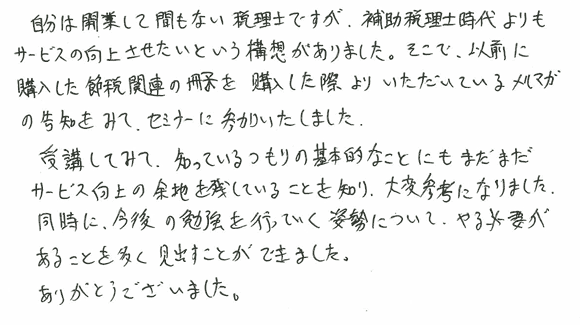 自分は開業して間もない税理士ですが、補助税理士時代よりも
サービスの向上させたいという構想がありました。そこで、以前に
購入した節税関連の冊子を購入した際よりいただいているメルマガ
の告知をみて、セミナーに参加いたしました。
受講してみて、知っているつもりの基本的なことにもまだまだ
サービス向上の余地を残していることを知り、大変参考になりました。
同時に、今後の勉強を行っていく姿勢について、やる必要が
あることを多く見出すことができました。
ありがとうございました。